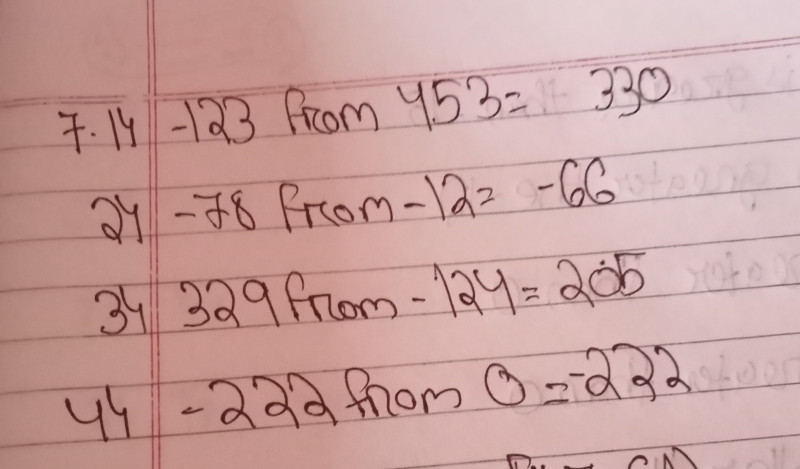 7. 14 -123 from 453= 330
24 -78 from -12= -66
34 329 from -124= 205
44 -222 from 0 = -222